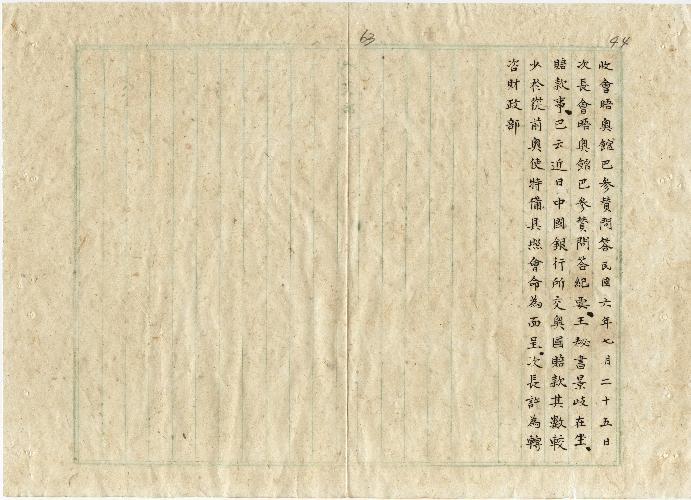 收會晤奧館巴參贊問答民國六年七月二十五日
次長會晤奧館巴參贊問答紀要王秘書景岐在坐
賠款事巴云近日中國銀行所交奧國賠款其數較
少於從前奧使特備具照會命為面呈次長許為轉
咨財政部
63
44